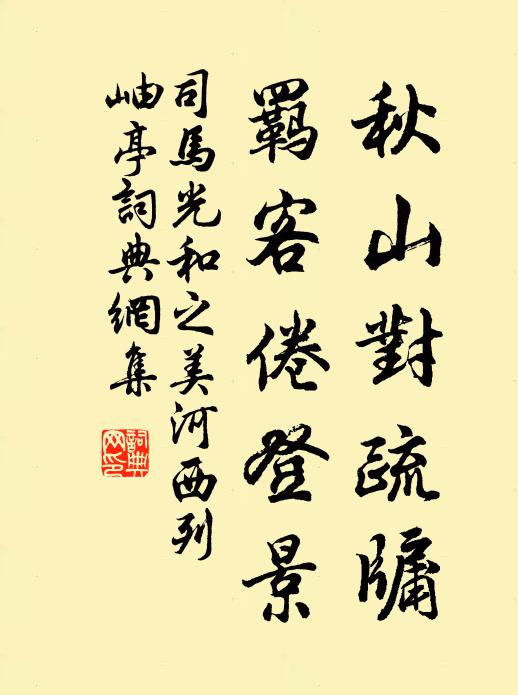 秋山對疏牖
羇客倦登景
司馬光和之美河西列
岫亭詞典網集
詞典
网印